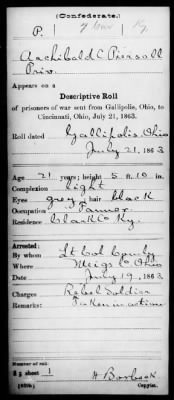 (Confederate.)
P. 7 Cav. Ky.
Archibald C Piersall
Priv.
Appears on a
Descriptive Roll
of prisoners of war sent from Gallipolis, Ohio, to
Cincinnati, Ohio, July 21, 1863.
Roll dated Gallipolis Ohio
July 21, 1863
Age 21 years; height 5 ft. 10 in.
Complexion light
Eyes grey; hair black
Occupation Farmer
Residence Clark Co Ky.
Arrested:
By whom Lt Col
Where Meigs Co Ohio
Date July 19, 1863
Charges Rebel Soldier
Remarks: Taken in action
Number of roll:
sheet 1
H Borbeck
Copyist.